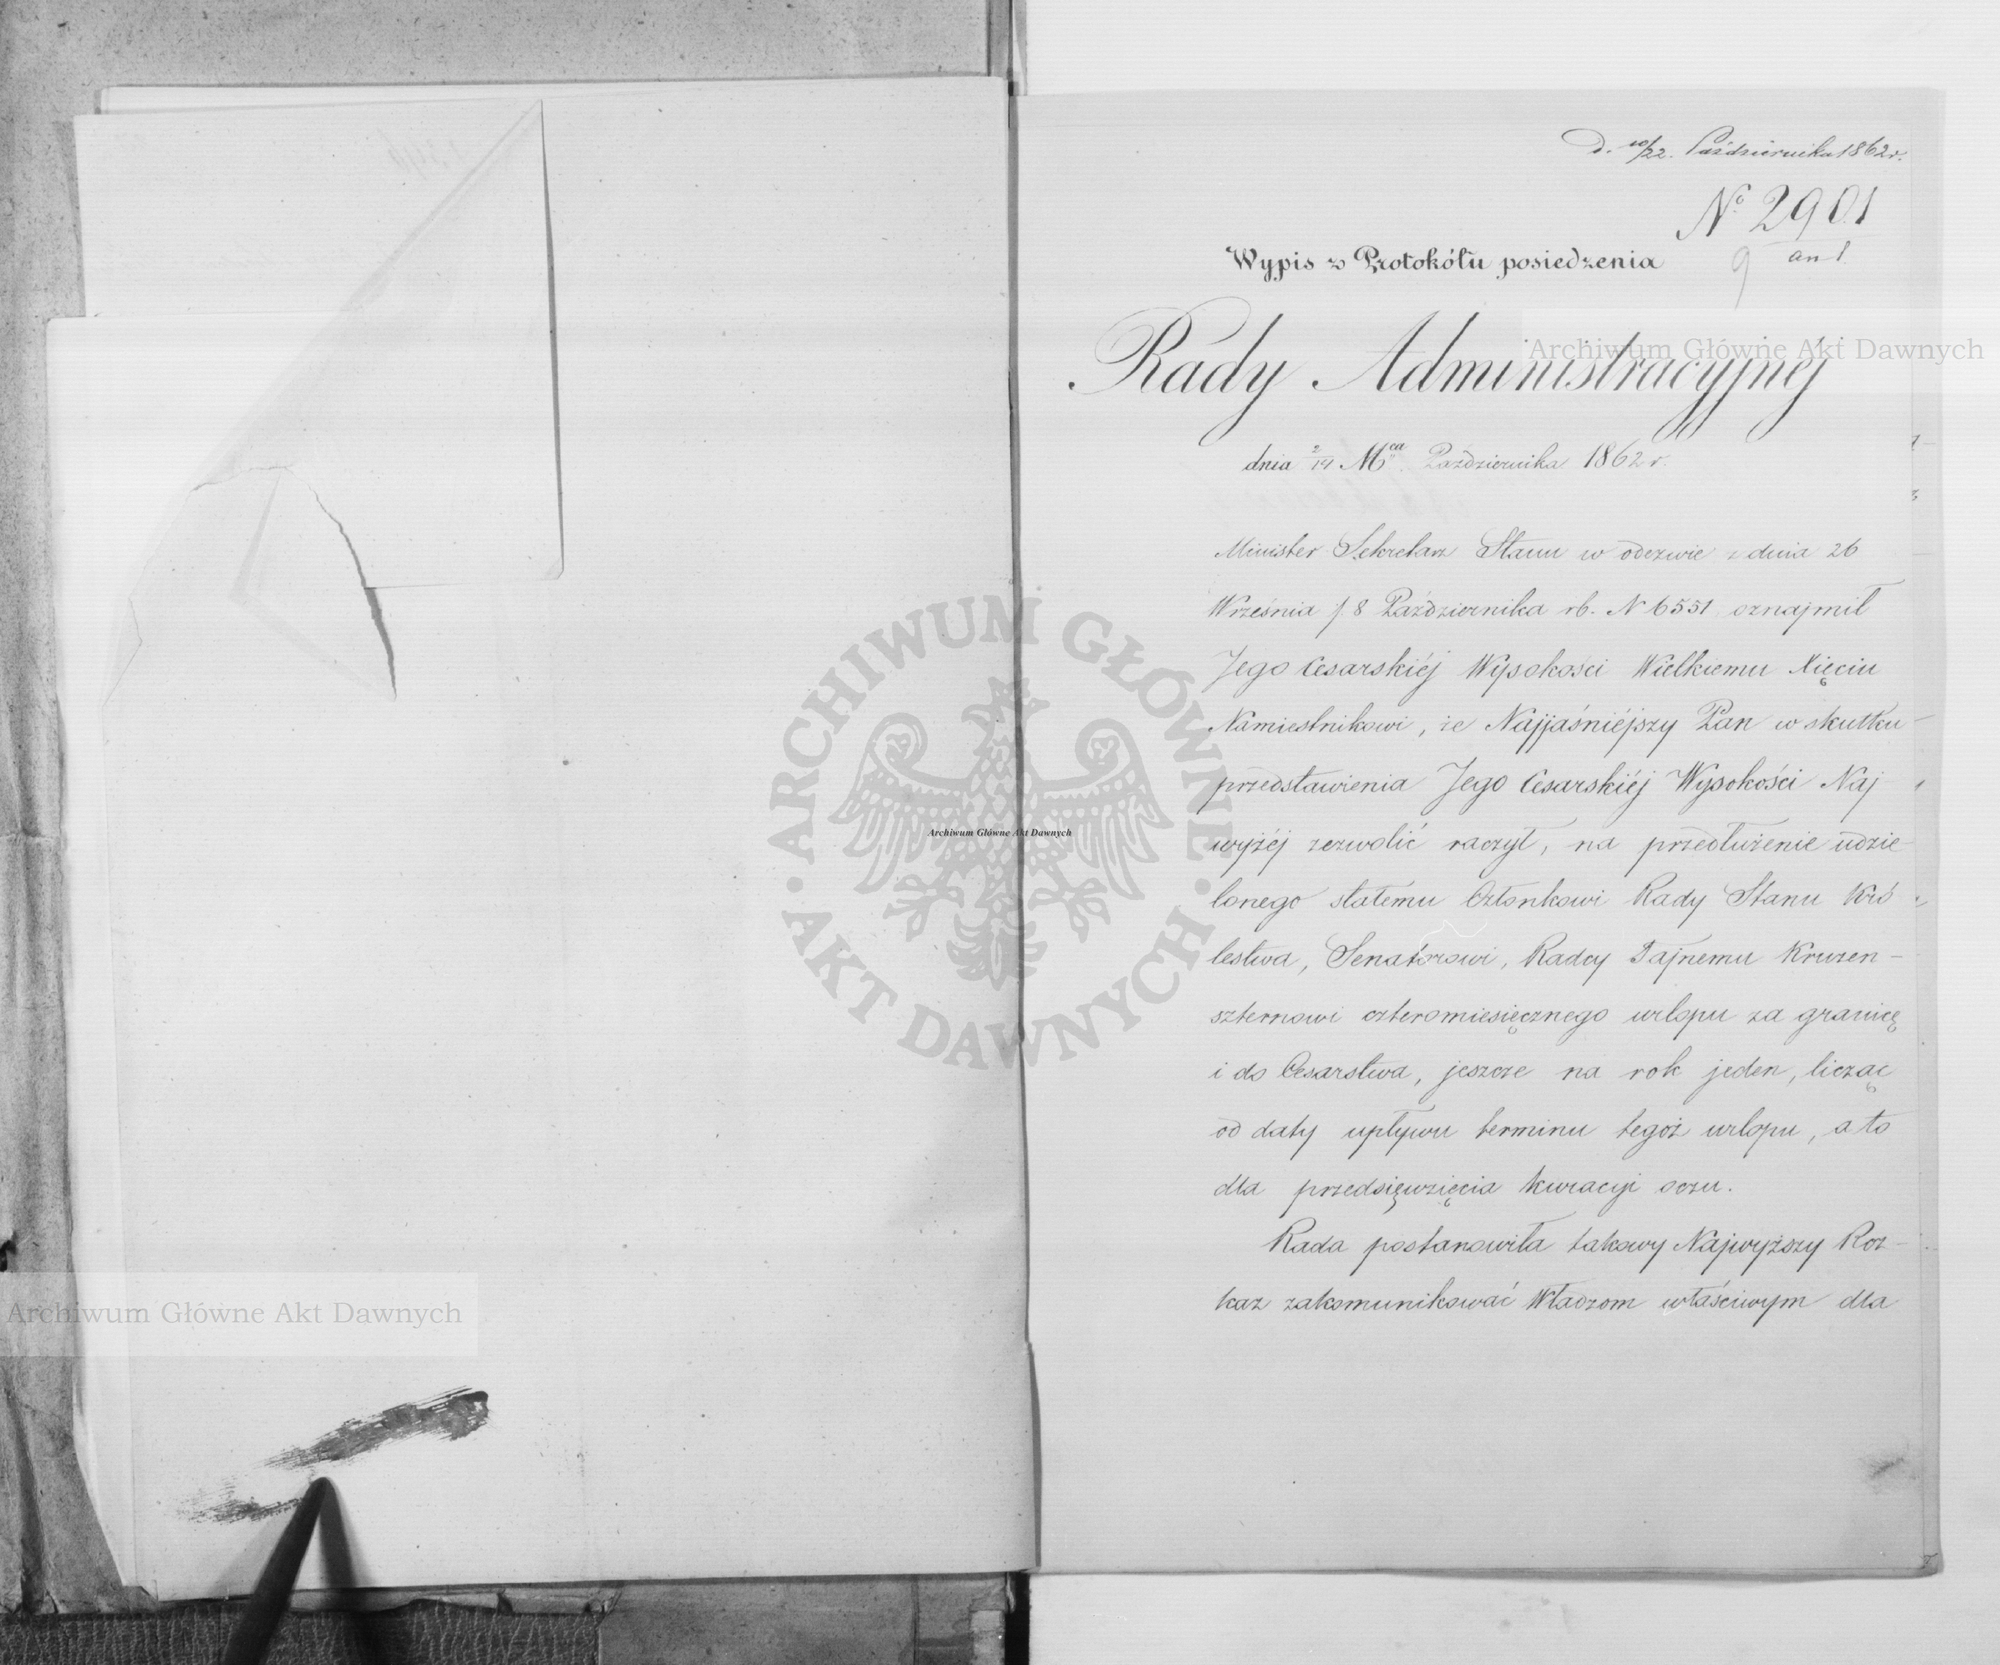 D. 10/22. Października 1862 r.
No 2901
9 an l.
Wypis z Protokółu posiedzenia
Rady Administracyjnéj
dnia 2/14 Mca Października 1862 r.
Minister Sekretarz Stanu w odezwie z dnia 26
Września /: 8 Października rb. N 6551 oznajmił
Jego Cesarskiéj Wysokości Wielkiemu Xięciu
Namiestnikowi, że Najjaśniéjszy Pan w skutku
przedstawienia Jego Cesarskiéj Wysokości Naj
wyżéj zezwolić raczył, na przedłużenie udzie-
lonego stałemu Członkowi Rady Stanu Kró
lestwa, Senatorowi, Radcy Tajnemu Kruzen-
szternowi czteromiesięcznego urlopu za granicę
i do Cesarstwa, jeszcze na rok jeden, licząc
od daty upływu terminu tegoż urlopu, a to
dla przedsięwzięcia kuracyi oczu.
Rada postanowiła takowy Najwyższy Roz-
kaz zakomunikować Władzom właściwym dla
Archiwum Główne Akt Dawnych
Archiwum Główne Akt Dawnych
Archiwum Główne Akt Dawnych
ARCHIWUM GŁÓWNE
AKT DAWNYCH